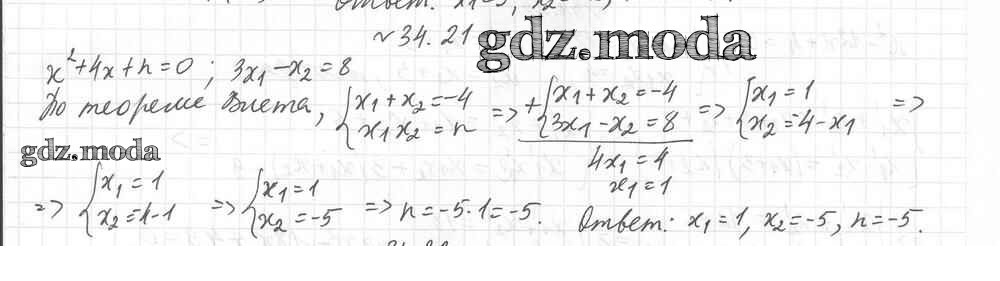 Ответ: x₁=5, x₂=
~34.21 gdz.moda
x²+4x+n=0 ; 3x₁-x₂=8
По теореме Виета, {x₁+x₂=-4 x₁x₂=n => +{x₁+x₂=-4 3x₁-x₂=8 => {x₁=1 x₂=-4-x₁ =>
4x₁=4
x₁=1
gdz.moda
=> {x₁=1 x₂=-4-1 => {x₁=1 x₂=-5 => n=-5·1=-5. Ответ: x₁=1, x₂=-5, n=-5.